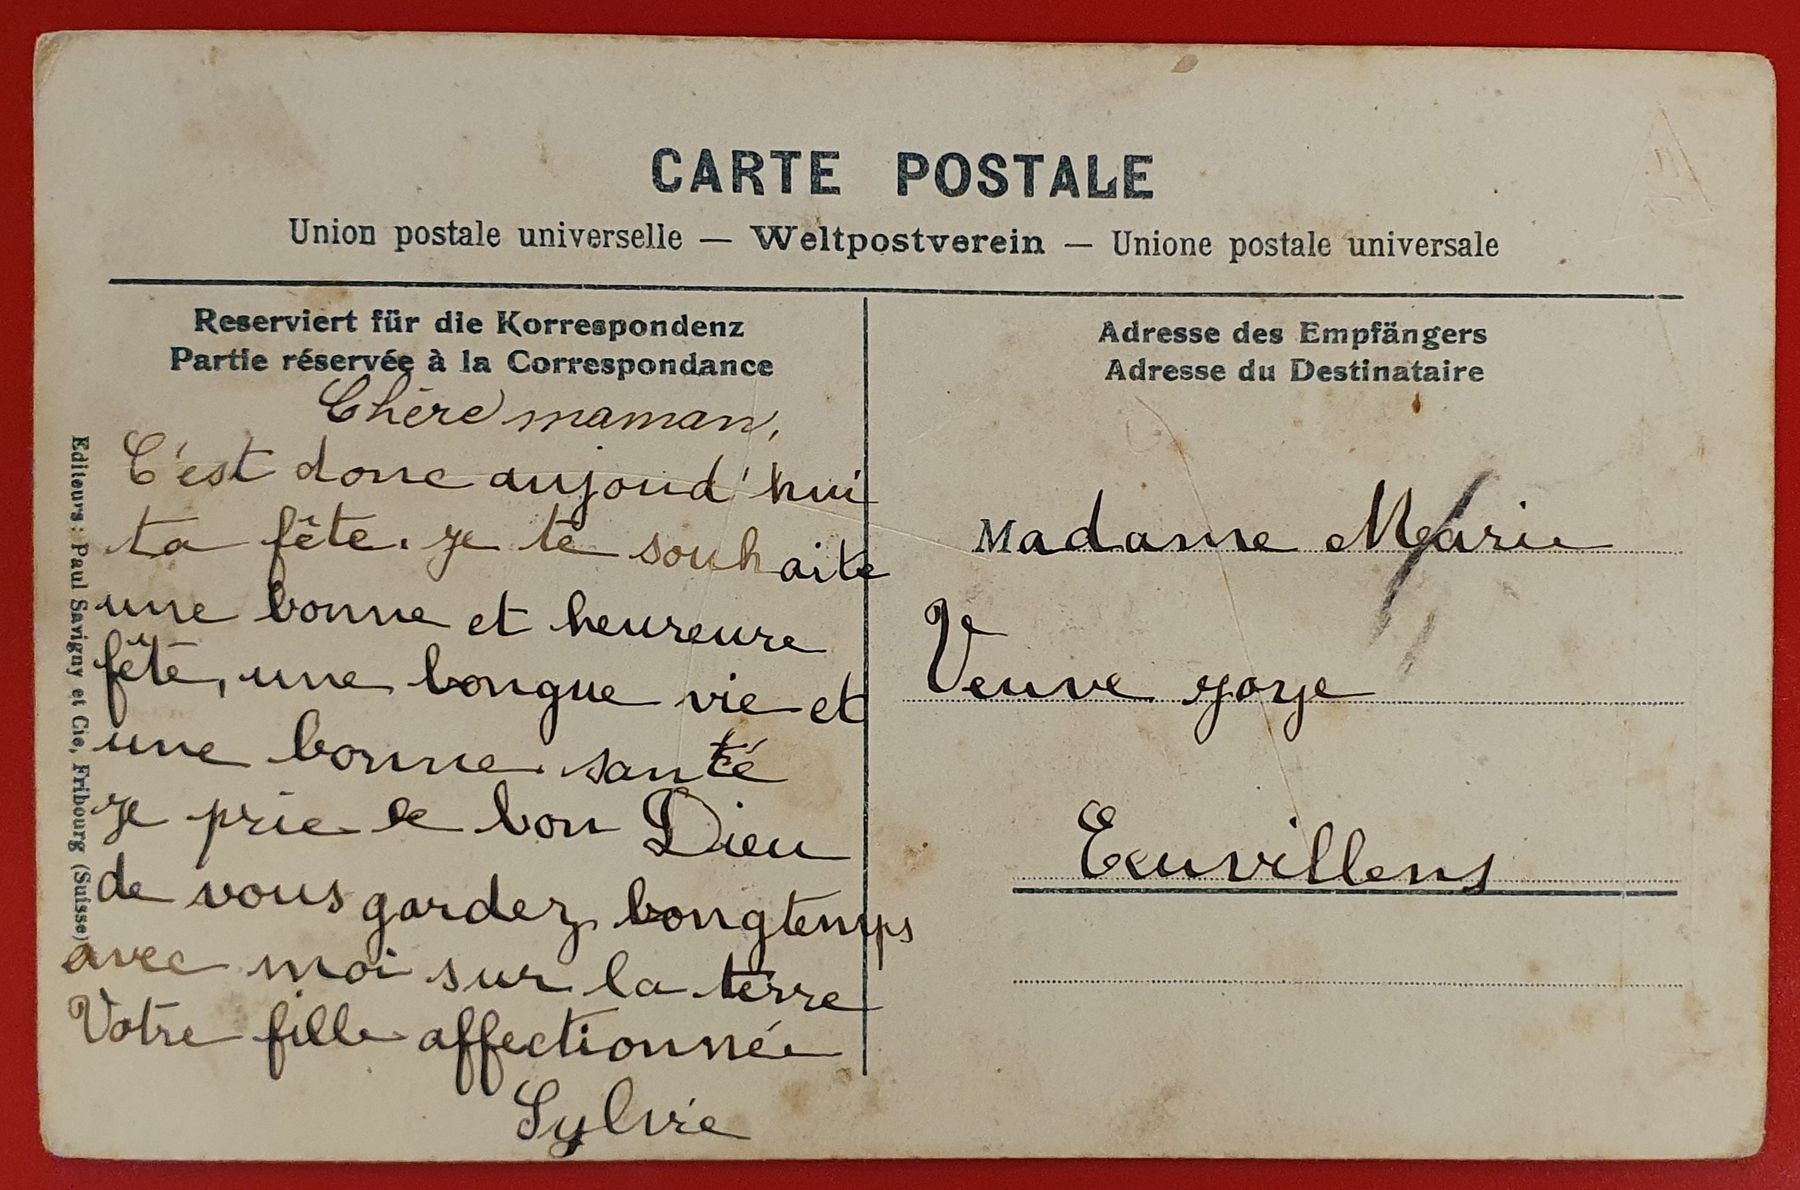 CARTE POSTALE
Union postale universelle — Weltpostverein — Unione postale universale
Reserviert für die Korrespondenz
Partie réservée à la Correspondance
Chère maman,
C'est donc aujourd'hui
ta fête. je te souhaite
une bonne et heureure
fête, une longue vie et
une bonne santé
Je prie le bon Dieu
de vous gardez longtemps
avec moi sur la terre
Votre fille affectionnée
Sylvie
Editeurs: Paul Savigny et Cie, Fribourg (Suisse)
Adresse des Empfängers
Adresse du Destinataire
Madame Marie
Veuve yoye
Ecuvillens